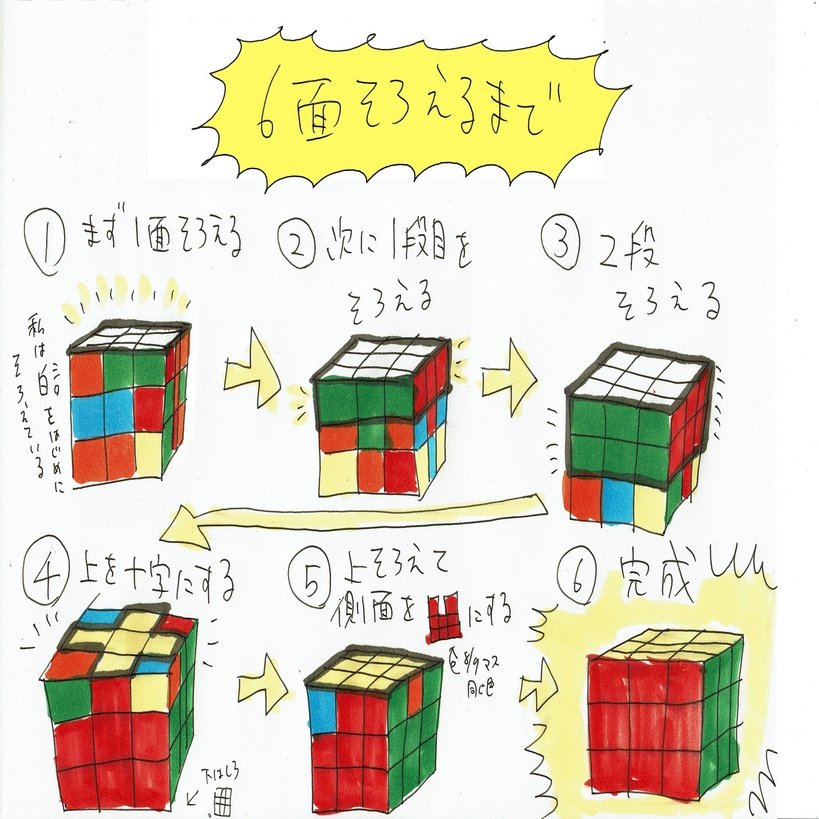 6面そろえるまで
① まず1面そろえる
私は白をはじめに
そろえている
② 次に1段目を
そろえる
③ 2段
そろえる
④ 上を十字にする
下はしろ
⑤ 上そろえて
側面を にする
色ぬりマス
同じ色
⑥ 完成